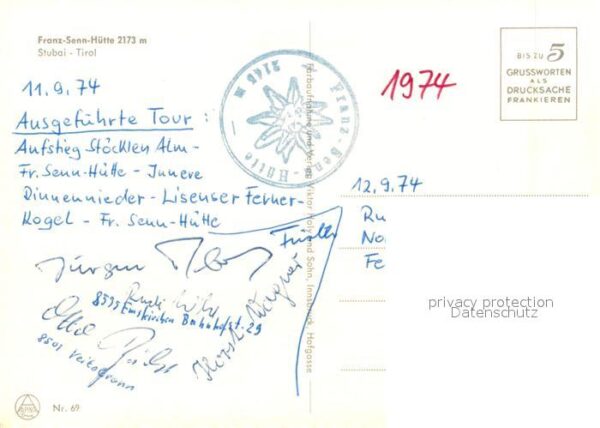 Franz-Senn-Hütte 2173 m
Stubai - Tirol
11.9.74
Ausgeführte Tour:
Aufstieg Stöcklen Alm -
Fr. Senn-Hütte - Innere
Rinnennieder - Lisenser Ferner-
Kogel - Fr. Senn-Hütte
Jürgen
8535 Emskirchen Bahnhofst. 29
8501 Veitsbronn
Horst Wagner
Fürth
Nr. 69
Franz-Senn-Hütte 2173 m
Farbaufnahme und Verlag Viktor Holy und Sohn, Innsbruck, Hofgasse
1974
BIS ZU 5
GRUSSWORTEN
ALS
DRUCKSACHE
FRANKIEREN
12.9.74
Ru
No
Fe
privacy protection
Datenschutz